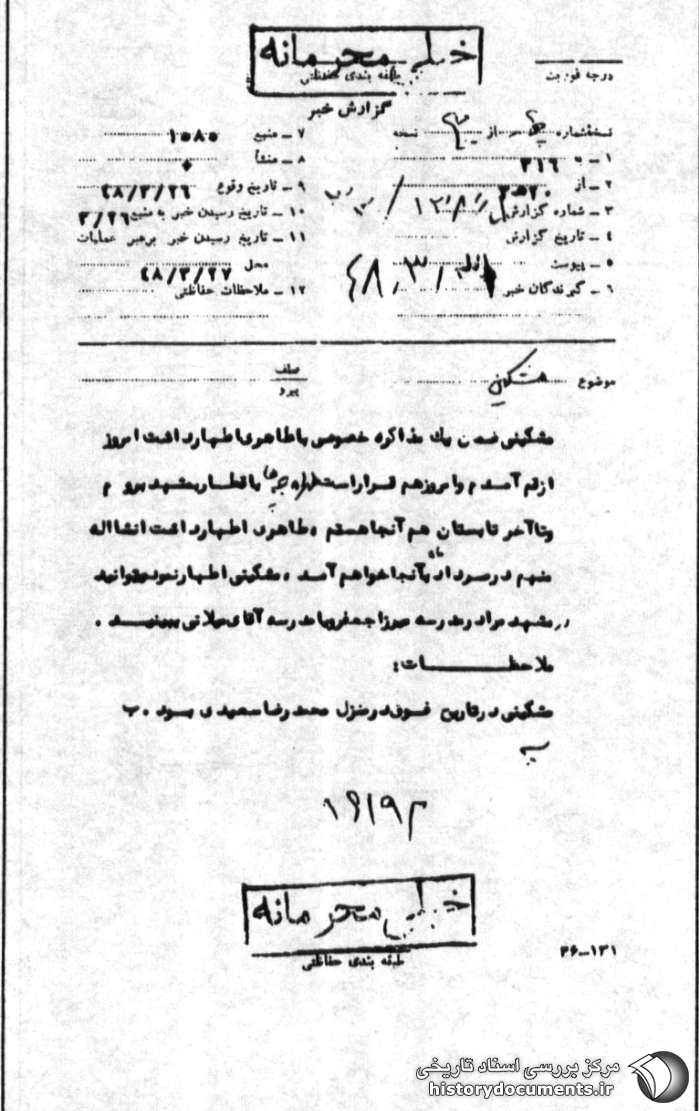 خیلی محرمانه
طبقه بندی حفاظتی
درجه فوریت
گزارش خبر
نسخه شماره از نسخه
۱ ـ به ۳۱۶
۲ ـ از
۳ ـ شماره گزارش
۴ ـ تاریخ گزارش
۵ ـ پیوست
۶ ـ گیرندگان خبر
۷ ـ منبع ۱۰۸۰
۸ ـ منشأ
۹ ـ تاریخ وقوع ۴۸/۳/۲۶
۱۰ ـ تاریخ رسیدن خبر به منبع ۳/۲۶
۱۱ ـ تاریخ رسیدن خبر برهبر عملیات
محل ۴۸/۳/۲۷
۱۲ ـ ملاحظات حفاظتی
موضوع مشکینی
عطف
پیرو
مشکینی ضمن یک مذاکره خصوصی باطاهری اظهارداشت امروز
ازقم آمدم وامروزهم قراراست باقطاربمشهد بروم
وتاآخر تابستان هم آنجاهستم ، طاهری اظهارداشت انشااله
منهم درمرداد بآنجاخواهم آمد ، مشکینی اظهارنمودمیتوانید
درمشهد مرادرمدرسه میرزاجعفریامدرسه آقای میلانی ببینید .
ملاحظات :
مشکینی درتاریخ فوق درمنزل محمدرضاسعیدی بود . ب
خیلی محرمانه
طبقه بندی حفاظتی
۳۶-۱۳۱
مرکز بررسی اسناد تاریخی
historydocuments.ir